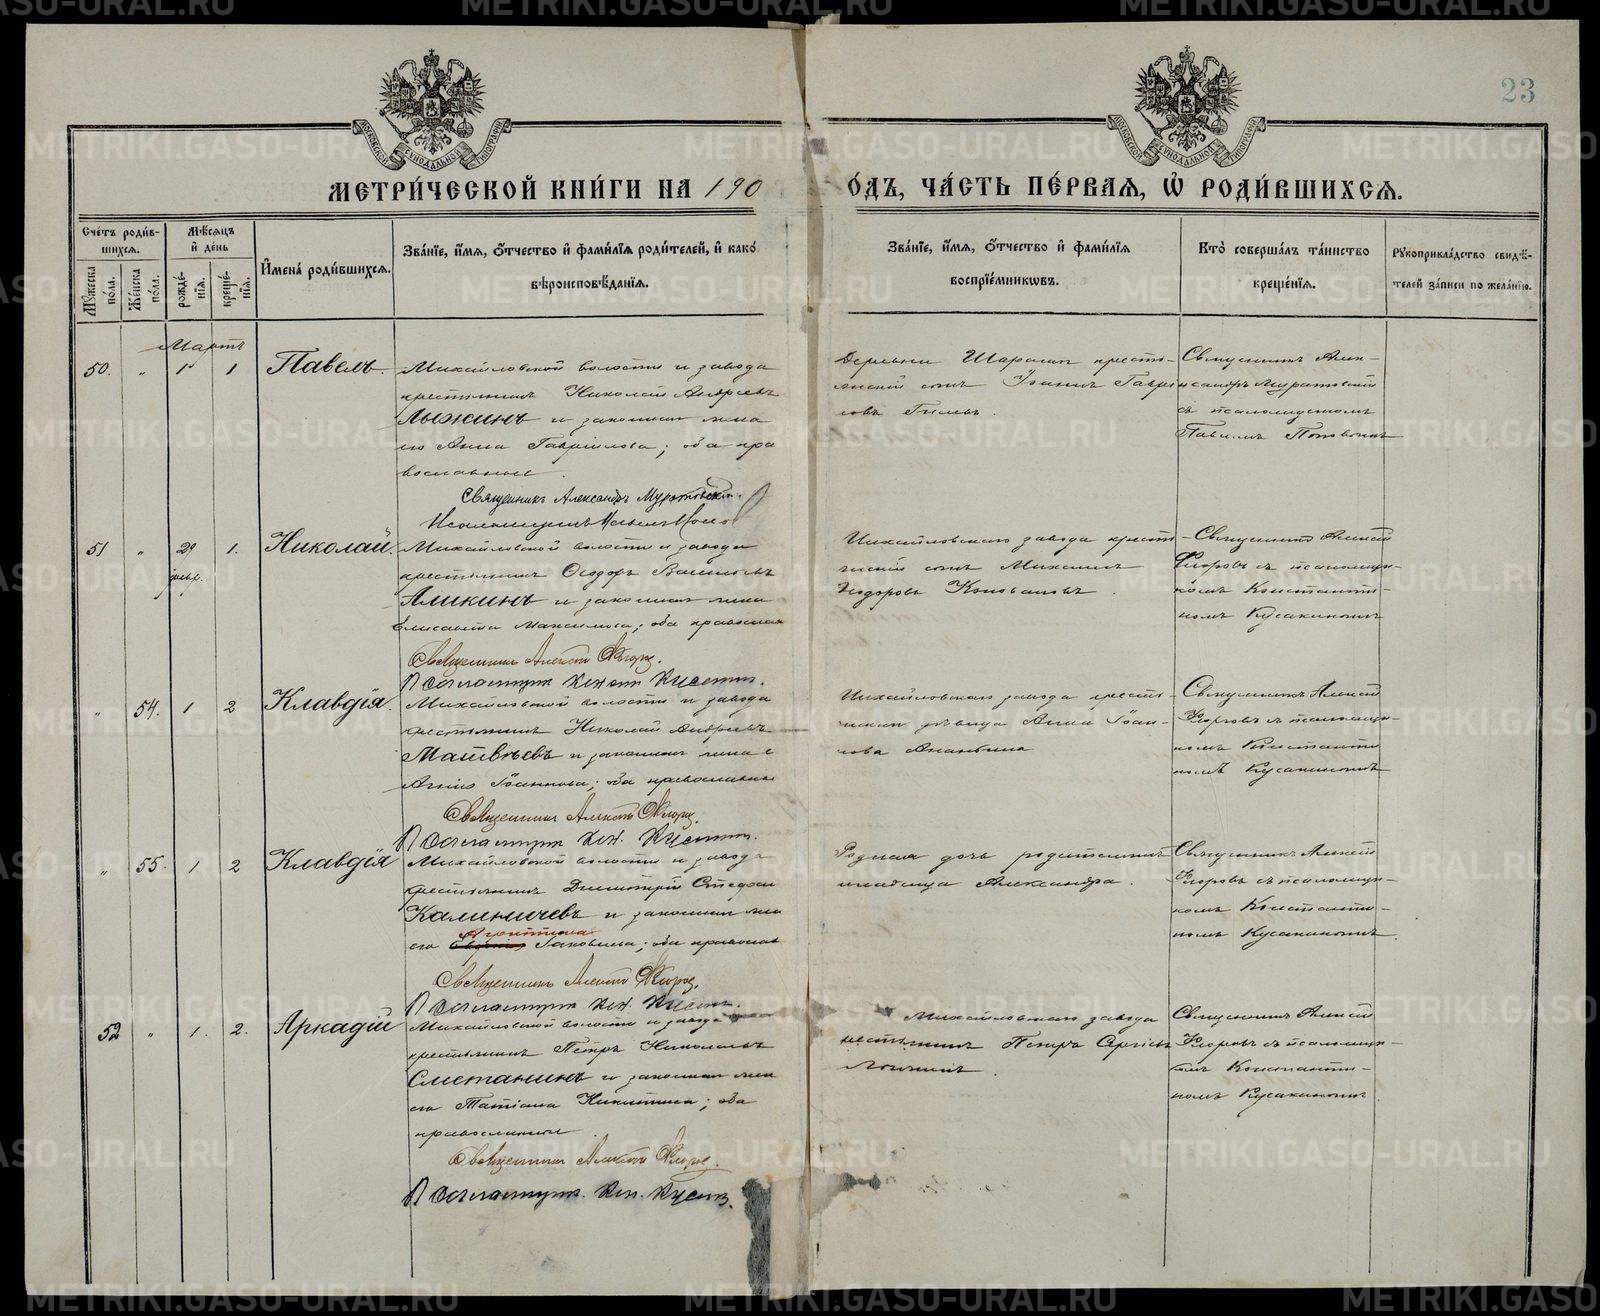 23
МОСКОВСКОЙ СѴНОДАЛЬНОЙ ТИПОГРАФІИ
МОСКОВСКОЙ СѴНОДАЛЬНОЙ ТИПОГРАФІИ
МЕТРИ́ЧЕСКОЙ КНИ́ГИ НА 190
О́ДЪ, ЧА́СТЬ ПЕ́РВАЯ, Ѡ҆ РОДИ́ВШИХСЯ.
Сче́тъ роди́в-
шихся.
Мꙋжеска по́ла.
Же́нска по́ла.
Мѣ́сяцъ и҆ де́нь
рожде́-
нїя.
креще́-
нїя.
И҆мена̀ роди́вшихся.
Зва́нїе, и҆́мя, ѻ҆́тчество и҆ фами́лїя роди́телей, и҆ како́
вѣроисповѣ́данїя.
Зва́нїе, и҆́мя, ѻ҆́тчество и҆ фами́лїя
воспрїе́мниковъ.
Кто̀ соверша́лъ та́инство
креще́нїя.
Рꙋкоприкла́дство свидѣ́-
телей за́писи по жела́нїю.
Мартъ
50. " 1 1 Павелъ.
Михайловской волости и завода
крестьянинъ Николай Андреевъ
Лыжинъ и законная жена
его Анна Гаврійлова; оба пра
вославные.
Священникъ Александръ Муратовскій.
Псаломщикъ Павелъ Попо
Деревни Шарама кресть-
янскій сынъ Іоаннъ Гаврі
ловъ Гилевъ.
Священникъ Алек-
сандръ Муратовскій
съ псаломщикомъ
Павломъ Поповымъ
51 " 29 февр. 1. Николай.
Михайловской волости и завода
крестьянинъ Ѳеодоръ Васильевъ
Аликинъ и законная жена
Елисавета Максимова; оба православ
Священникъ Алексѣй Флоровъ.
Псаломщикъ Конст. Кусакин.
Михайловскаго завода кресть-
янскій сынъ Михаилъ
Ѳеодоровъ Коноваловъ.
Священникъ Алексій
Флоровъ съ псаломщи-
комъ Константи-
номъ Кусакинымъ
" 54. 1 2 Клавдія.
Михайловской волости и завода
крестьянинъ Николай Андреевъ
Матвѣевъ и законная жена е
Анна Іоаннова; оба православные
Священникъ Алексѣй Флоров.
Псаломщикъ Кон. Кусакин.
Михайловскаго завода кресть-
янская дѣвица Анна Іоан-
нова Ананьина
Священникъ Алексій
Флоровъ съ псаломщи-
комъ Константи
номъ Кусакинымъ
" 55. 1 2 Клавдія
Михайловской волости и завода
крестьянинъ Димитрій Стефан
Калиничевъ и законная жен
Агриппина
его Іаковлева; оба православ
Священникъ Алексѣй Флоров.
Псаломщикъ Кон. Кусакин.
Родная дочь родителей
младенца Александра.
Священникъ Алексій
Флоровъ съ псаломщи-
комъ Константи-
номъ Кусакинымъ.
52 " 1. 2. Аркадій
Михайловской волости и завода
крестьянинъ Петръ Николаевъ
Сметанинъ и законная жен
его Татіана Никитина; оба
православные.
Священникъ Алексѣй Флоров.
Псаломщикъ. Кон. Кусакин.
Михайловскаго завода
крестьянинъ Петръ Сергіевъ
Священникъ Алексій
Флоровъ съ псаломщи-
комъ Константи-
номъ Кусакинымъ.
METRIKI.GASO-URAL.RU